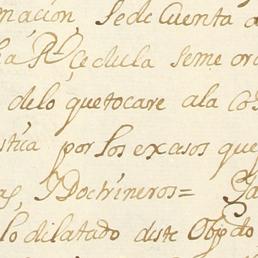 mación se de Cuenta a
la Rl. Cedula se me or
delo que tocare ala Co
stica por los excesos que
as, y Doctrineros =
lo dilatado deste Obpdo